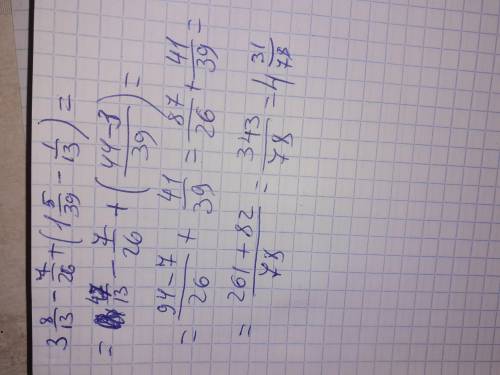 3 8/13 - 7/26 + (1 5/39 - 1/13) =
= 47/13 - 7/26 + (44-3/39) =
= 94-7/26 + 41/39 = 87/26 + 41/39 =
= 261+82/78 = 343/78 = 4 31/78